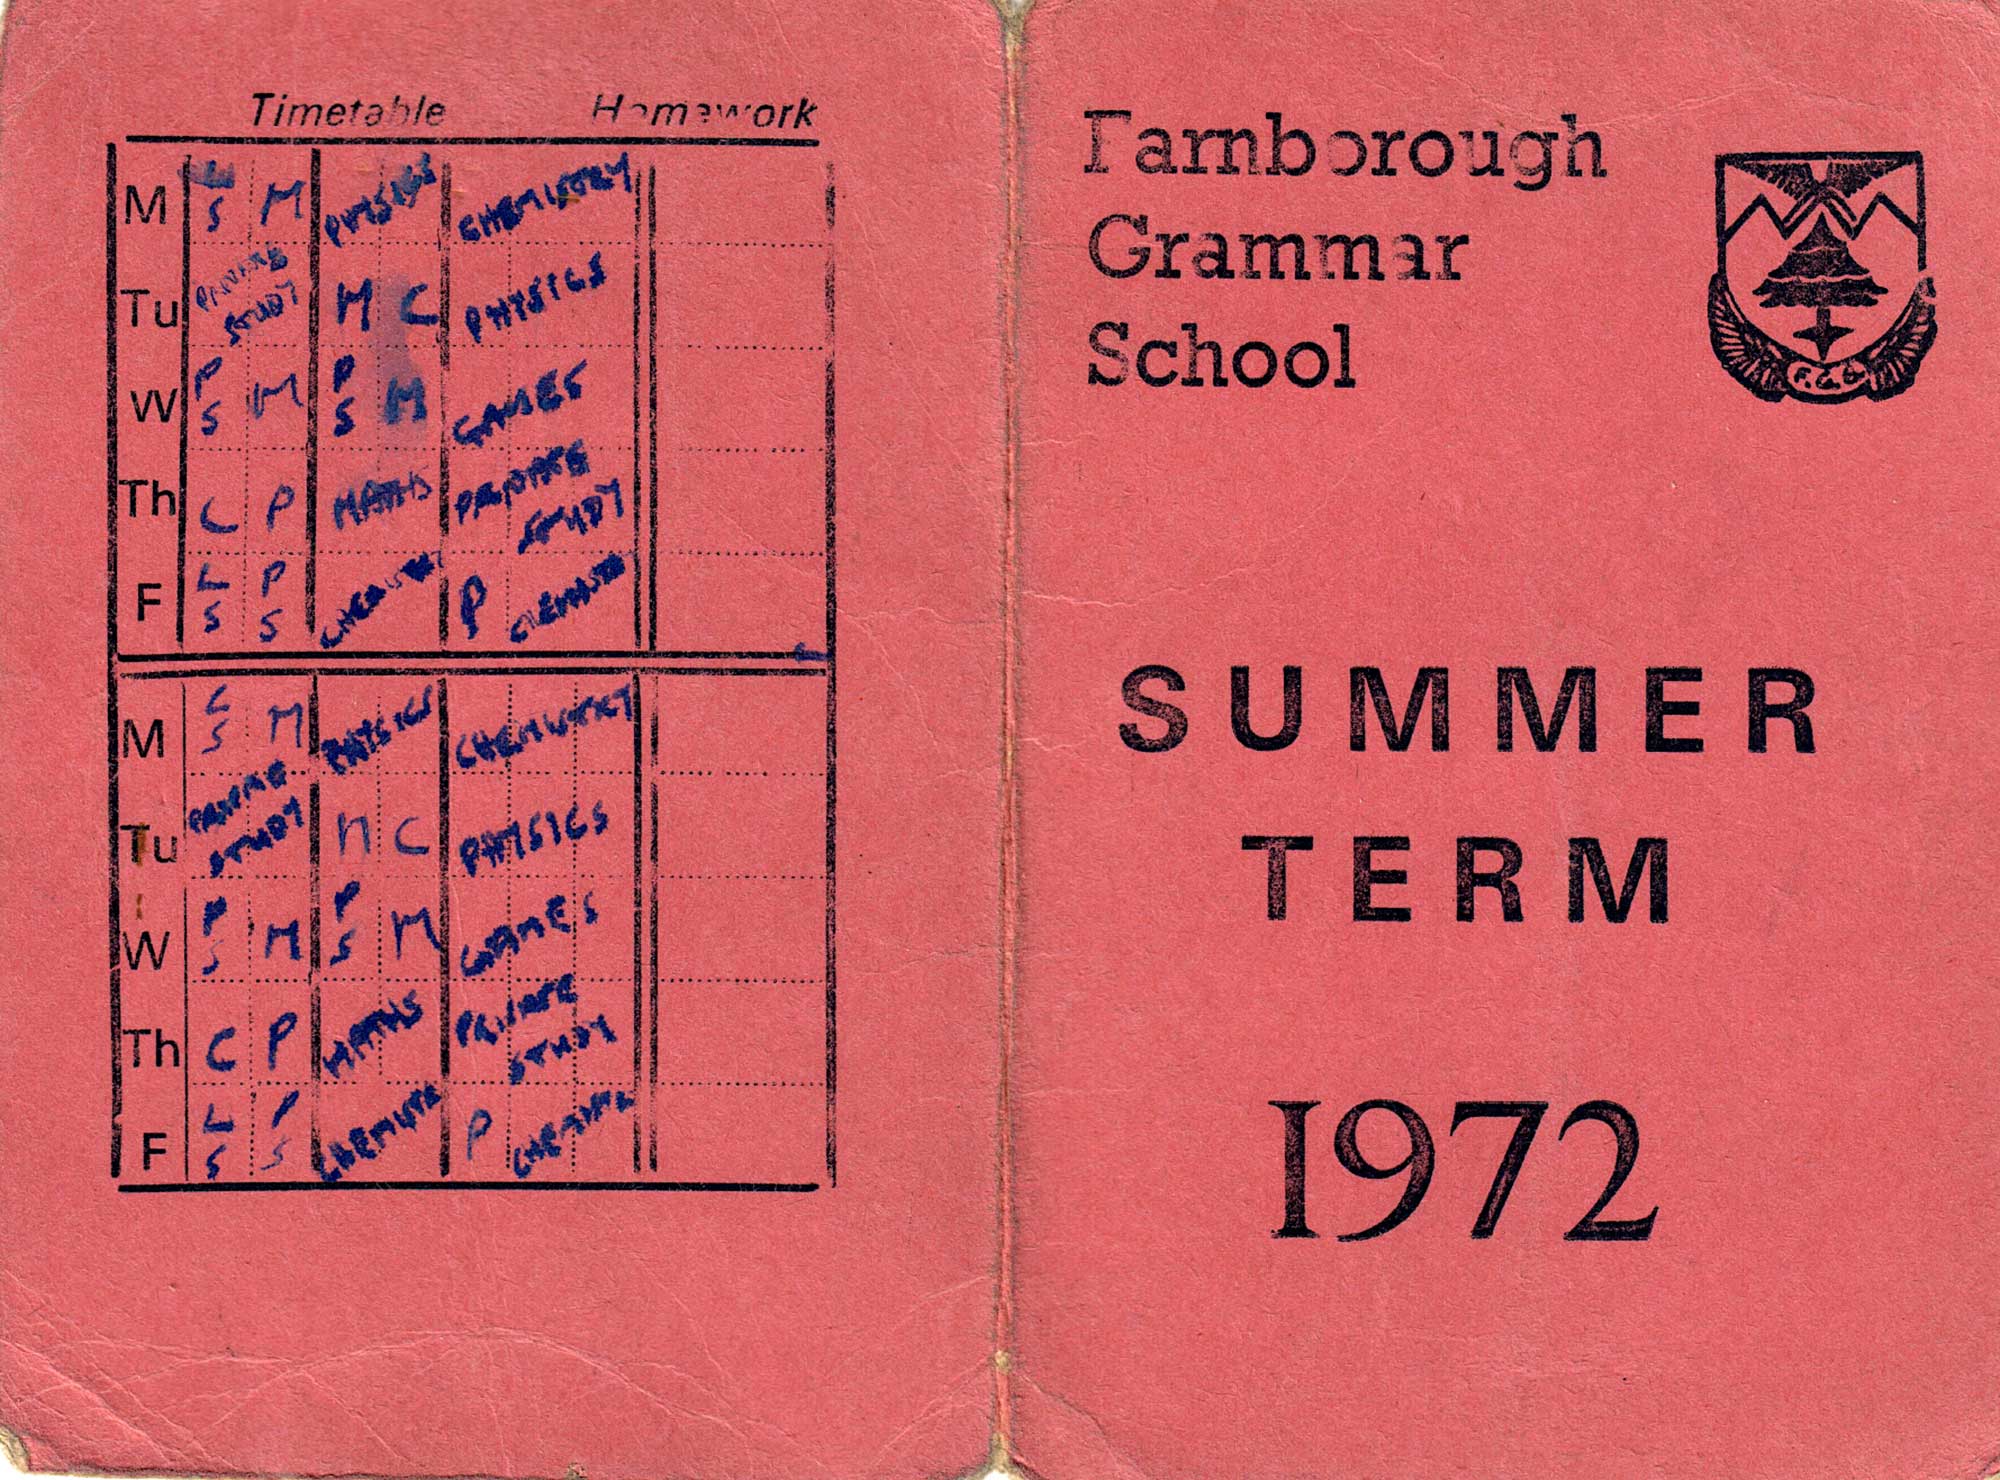 Timetable Homework
M L S M PHYSICS CHEMISTRY
Tu PRIVATE STUDY M C PHYSICS
W P S M P S M GAMES
Th C P MATHS PRIVATE STUDY
F L S P S CHEMISTRY P CHEMISTRY
M L S M PHYSICS CHEMISTRY
Tu PRIVATE STUDY M C PHYSICS
W P S M P S M GAMES
Th C P MATHS PRIVATE STUDY
F L S P S CHEMISTRY P CHEMISTRY
Farnborough
Grammar
School
F.G.S.
SUMMER
TERM
1972